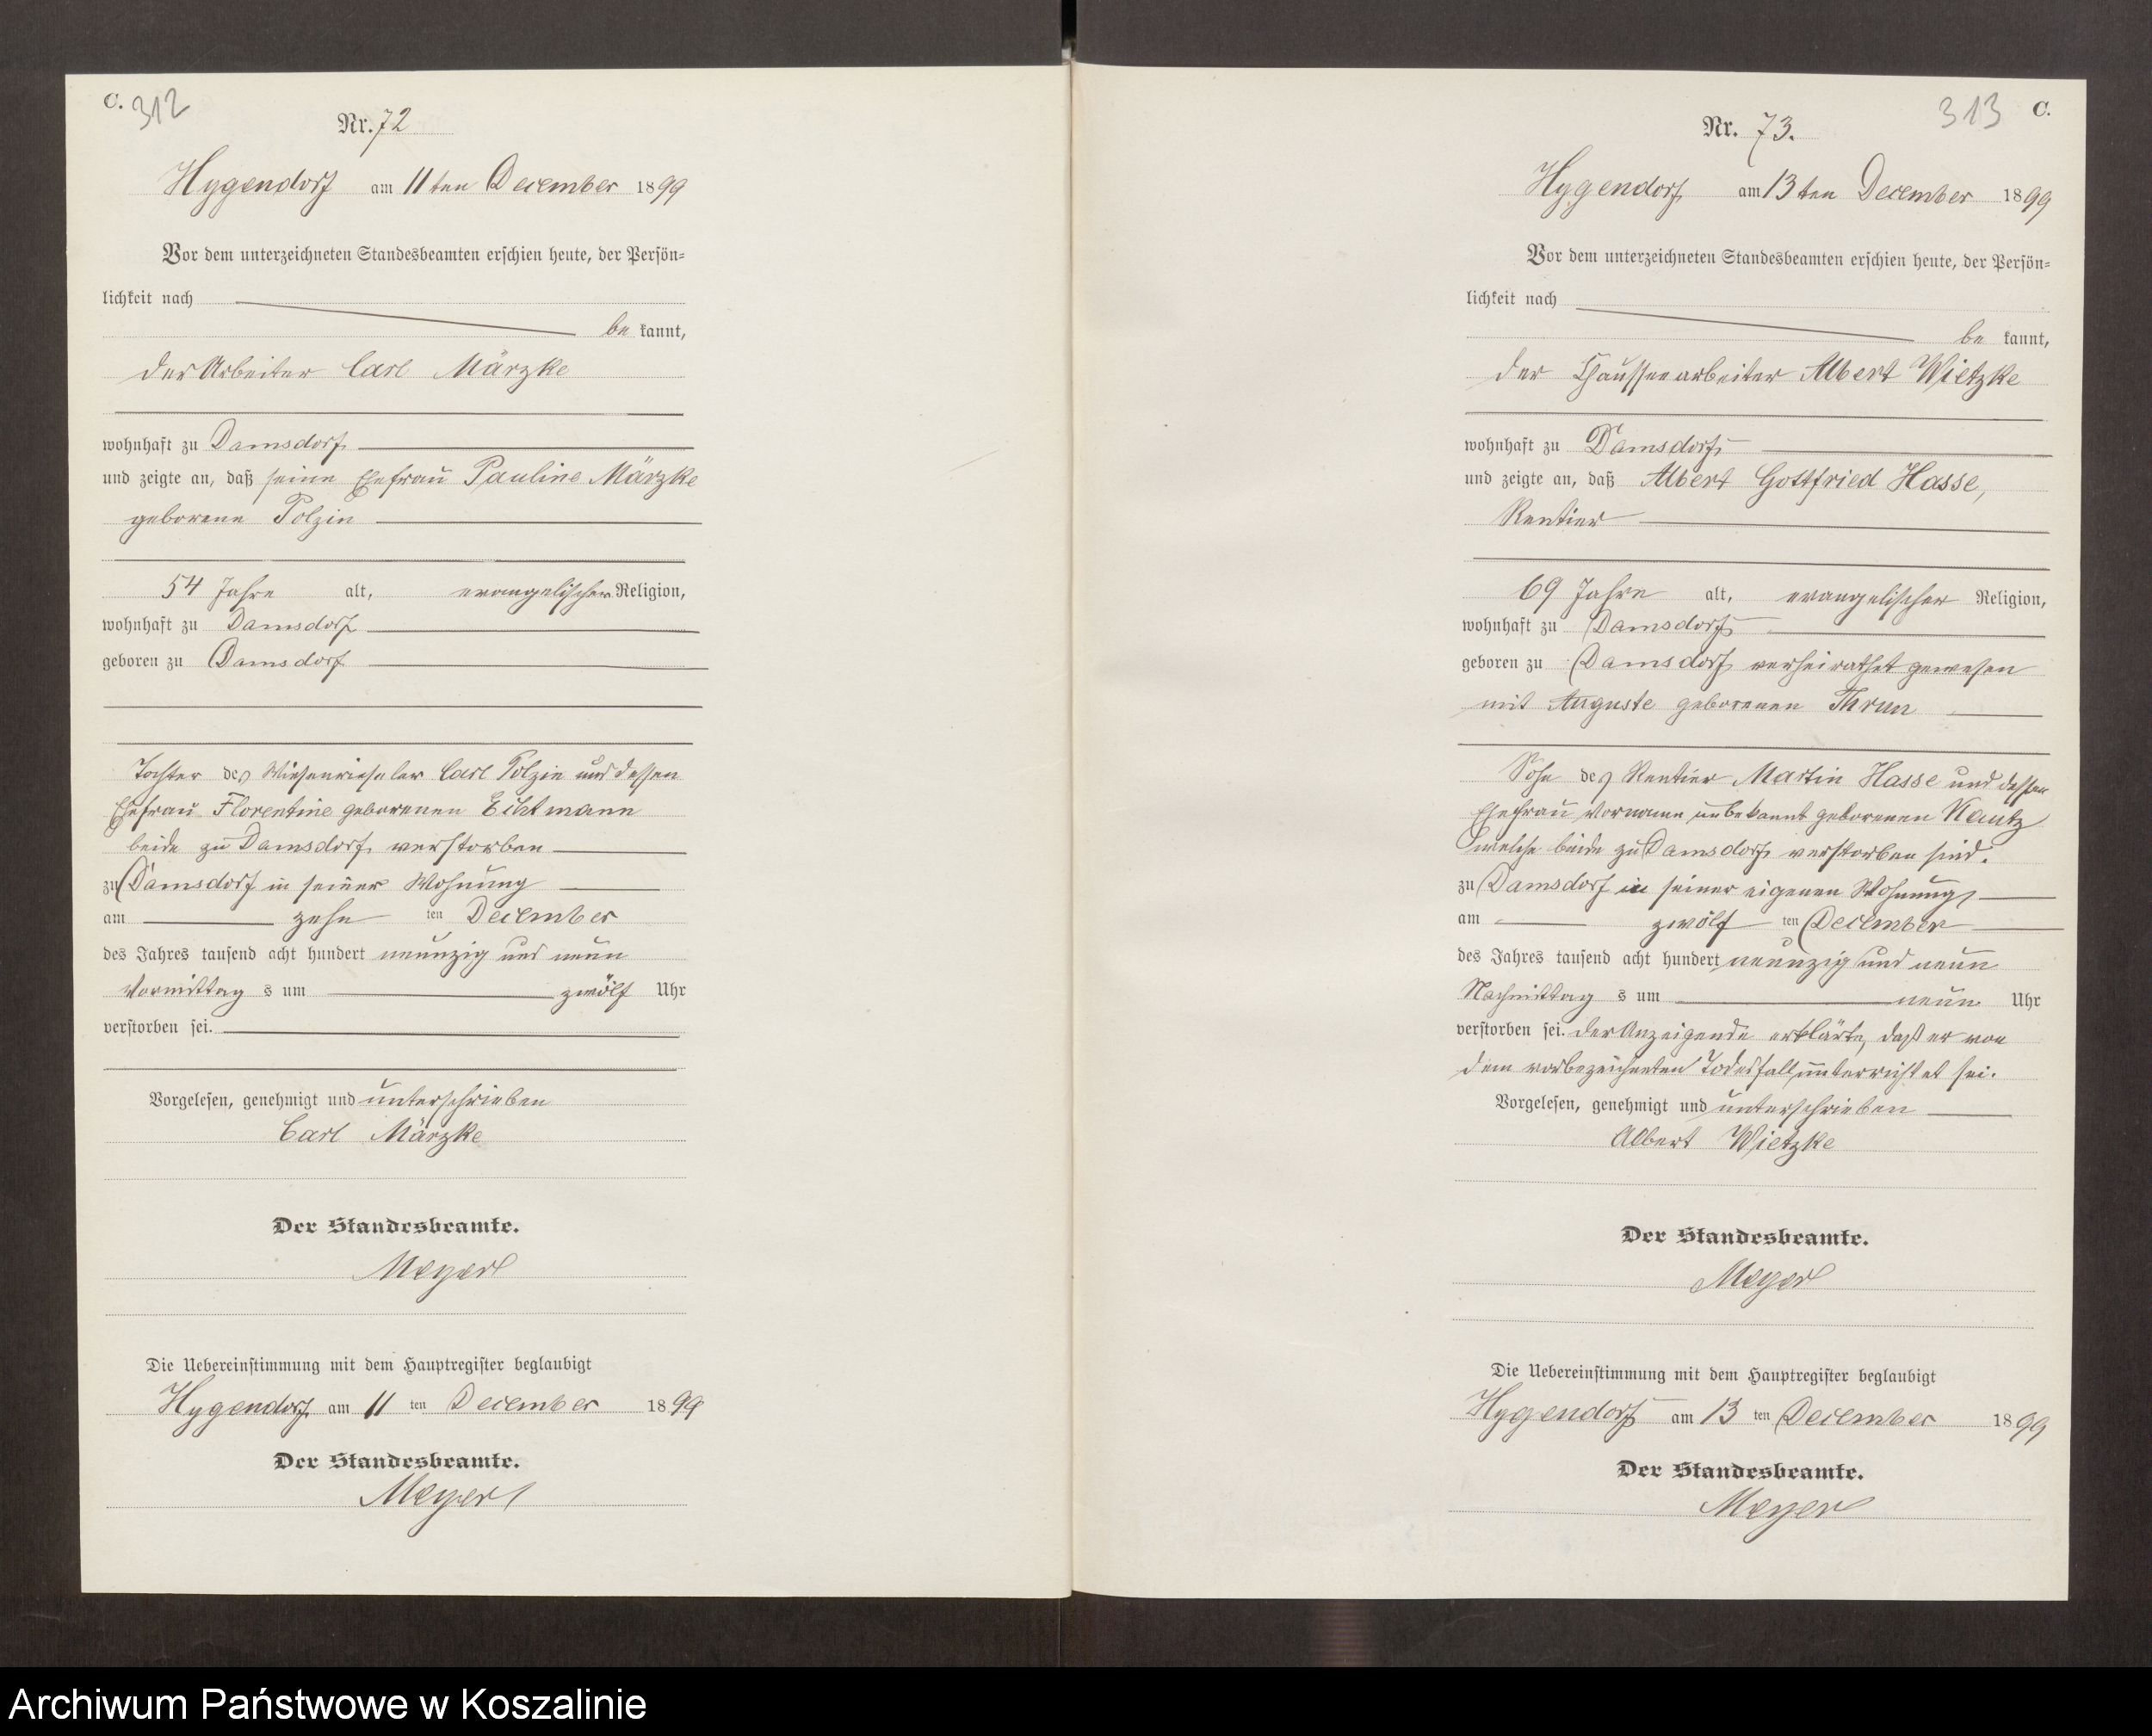 C. 312
Nr. 72
Hygendorf am 11ten December 1899
Vor dem unterzeichneten Standesbeamten erschien heute, der Persön-
lichkeit nach
be kannt,
der Arbeiter Carl Märzke
wohnhaft zu Damsdorf
und zeigte an, daß seine Ehefrau Pauline Märzke
geborene Polzin
54 Jahre alt, evangelischer Religion,
wohnhaft zu Damsdorf
geboren zu Damsdorf
Tochter des Wiesenrieseler Carl Polzin und dessen
Ehefrau Florentine geborenen Eichtmann
beide zu Damsdorf verstorben
zu Damsdorf in seiner Wohnung
am zehn ten December
des Jahres tausend acht hundert neunzig und neun
Vormittag s um zwölf Uhr
verstorben sei.
Vorgelesen, genehmigt und unterschrieben
Carl Märzke
Der Standesbeamte.
Meyer
Die Uebereinstimmung mit dem Hauptregister beglaubigt
Hygendorf am 11 ten December 1899
Der Standesbeamte.
Meyer
313 C.
Nr. 73.
Hygendorf am 13ten December 1899
Vor dem unterzeichneten Standesbeamten erschien heute, der Persön-
lichkeit nach
be kannt,
der Chausseearbeiter Albert Wietzke
wohnhaft zu Damsdorf
und zeigte an, daß Albert Gottfried Hasse,
Rentier
69 Jahre alt, evangelischer Religion,
wohnhaft zu Damsdorf
geboren zu Damsdorf verheirathet gewesen
mit Auguste geborenen Thrun
Sohn des Rentier Martin Hasse und dessen
Ehefrau Vorname unbekannt geborenen Kautz
welche beide zu Damsdorf verstorben sind.
zu Damsdorf in seiner eigenen Wohnung
am zwölf ten December
des Jahres tausend acht hundert neunzig und neun
Nachmittag s um neun Uhr
verstorben sei. Der Anzeigende erklärte, daß er von
dem vorbezeichneten Todesfall unterrichtet sei.
Vorgelesen, genehmigt und unterschrieben
Albert Wietzke
Der Standesbeamte.
Meyer
Die Uebereinstimmung mit dem Hauptregister beglaubigt
Hygendorf am 13 ten December 1899
Der Standesbeamte.
Meyer
Archiwum Państwowe w Koszalinie